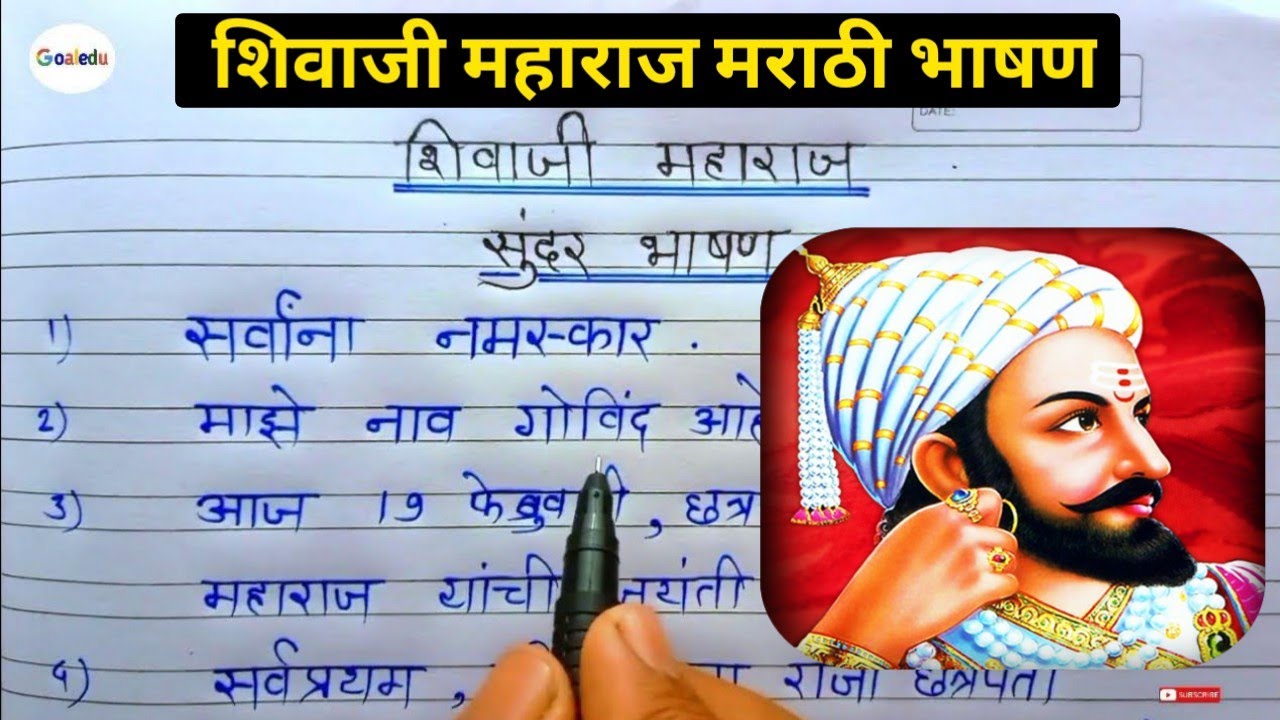 Goaledu
शिवाजी महाराज मराठी भाषण
DATE:
शिवाजी महाराज
सुंदर भाषण
1) सर्वांना नमस्कार .
2) माझे नाव गोविंद
3) आज 19 , छत्र
महाराज यांची
4) सर्वप्रथम , राजा छत्रपती
SUBSCRIBE